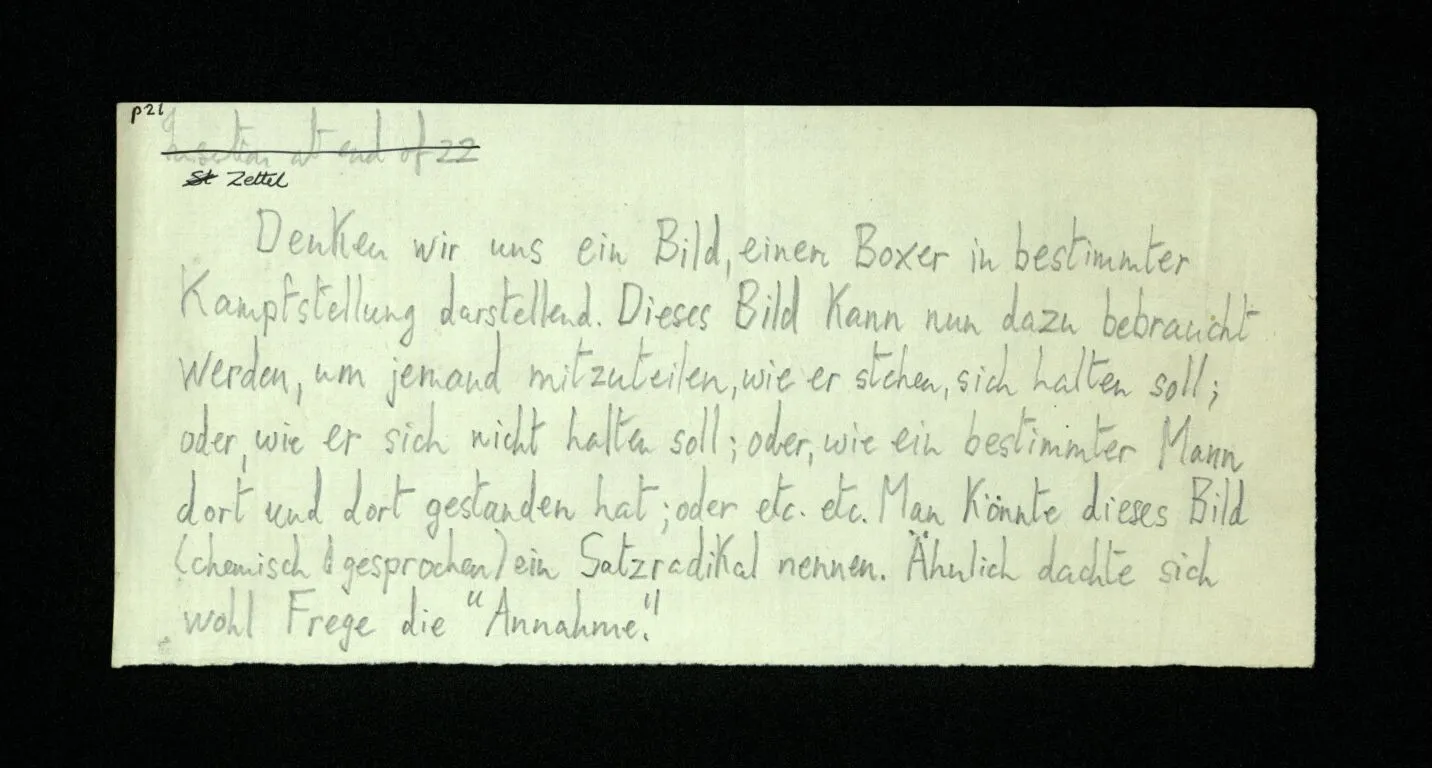 p21
Insertion at end of 22
St Zettel
Denken wir uns ein Bild, einen Boxer in bestimmter
Kampfstellung darstellend. Dieses Bild kann nun dazu bebraucht
werden, um jemand mitzuteilen, wie er stehen, sich halten soll;
oder, wie er sich nicht halten soll; oder, wie ein bestimmter Mann
dort und dort gestanden hat; oder etc. etc. Man könnte dieses Bild
(chemisch gesprochen) ein Satzradikal nennen. Ähnlich dachte sich
wohl Frege die "Annahme."